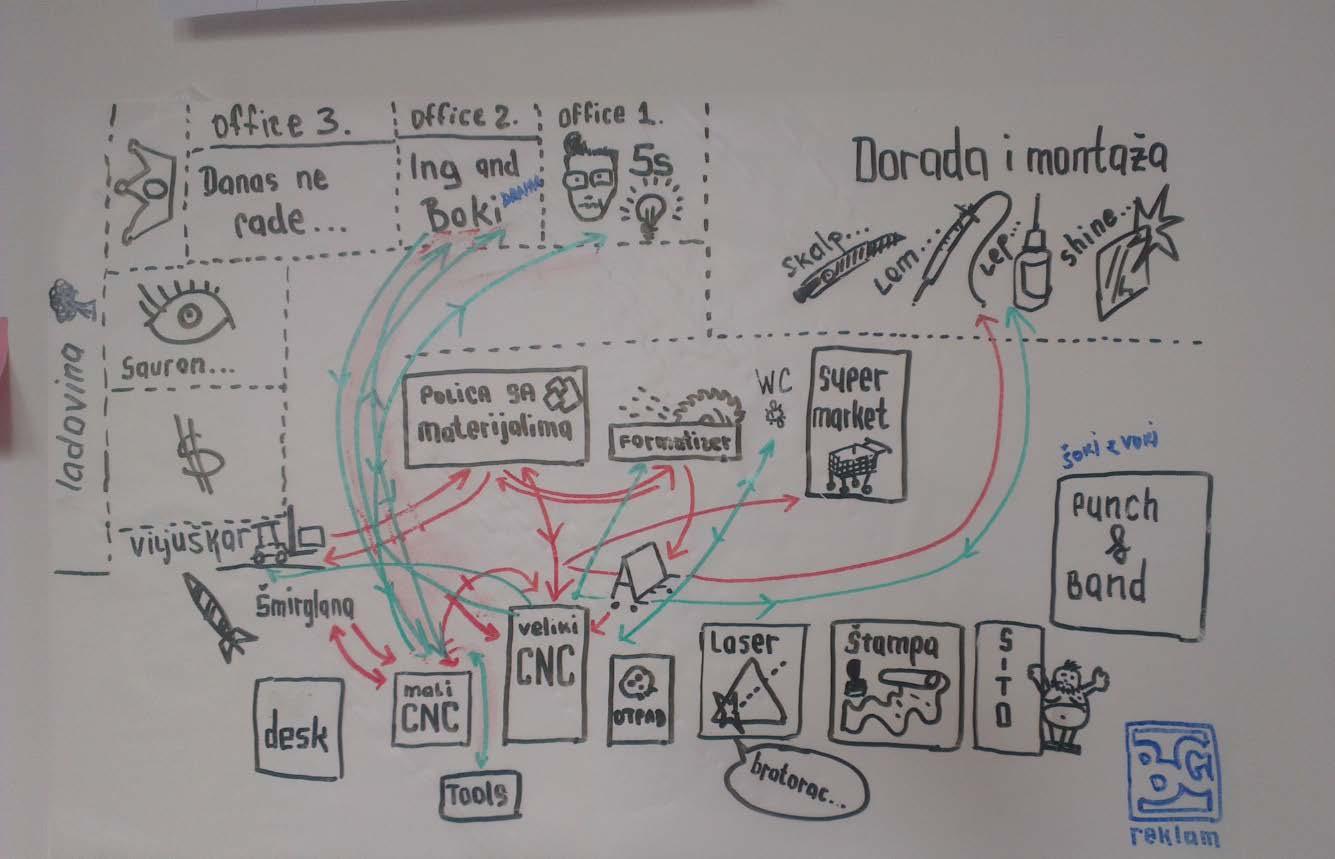 office 3.
Danas ne
rade...
office 2.
Ing and
Boki
office 1.
5s
Dorada i montaža
skalp...
Lam...
Lep...
shine...
ladovina
Sauron...
$
POLICA SA
materijalima
Formatizer
WC
super
market
šoki z voki
Punch
&
Band
viljuškar
Šmirglana
veliki
CNC
mali
CNC
desk
Tools
OTPAD
Laser
bratorac...
Štampa
SITO
BGG
reklam